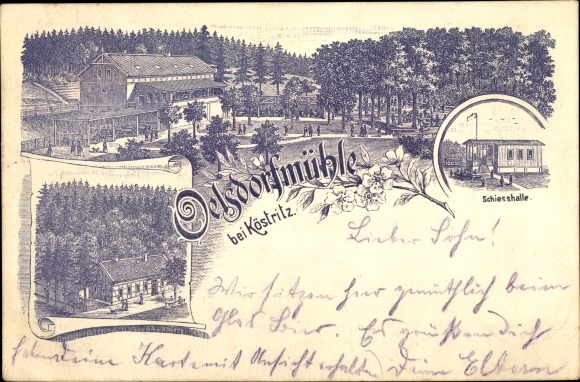 Oelsdorfmühle
bei Köstritz.
Schiesshalle.
Lieber Sohn!
Wir sitzen hier gemüthlich beim
Glas Bier. Es grüßen dich
haben deine Karte mit Ansicht erhalten Deine Eltern